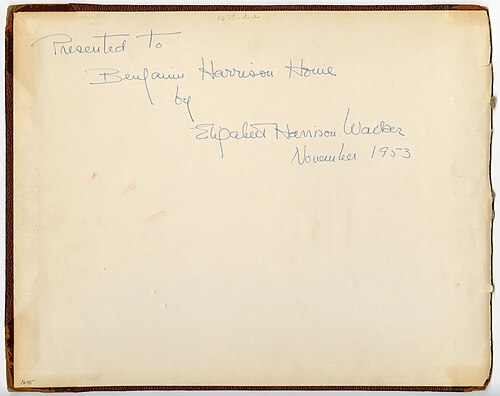 1675.1.a
Presented To
Benjamin Harrison Home
by
Elizabeth Harrison Walker
November 1953
1675